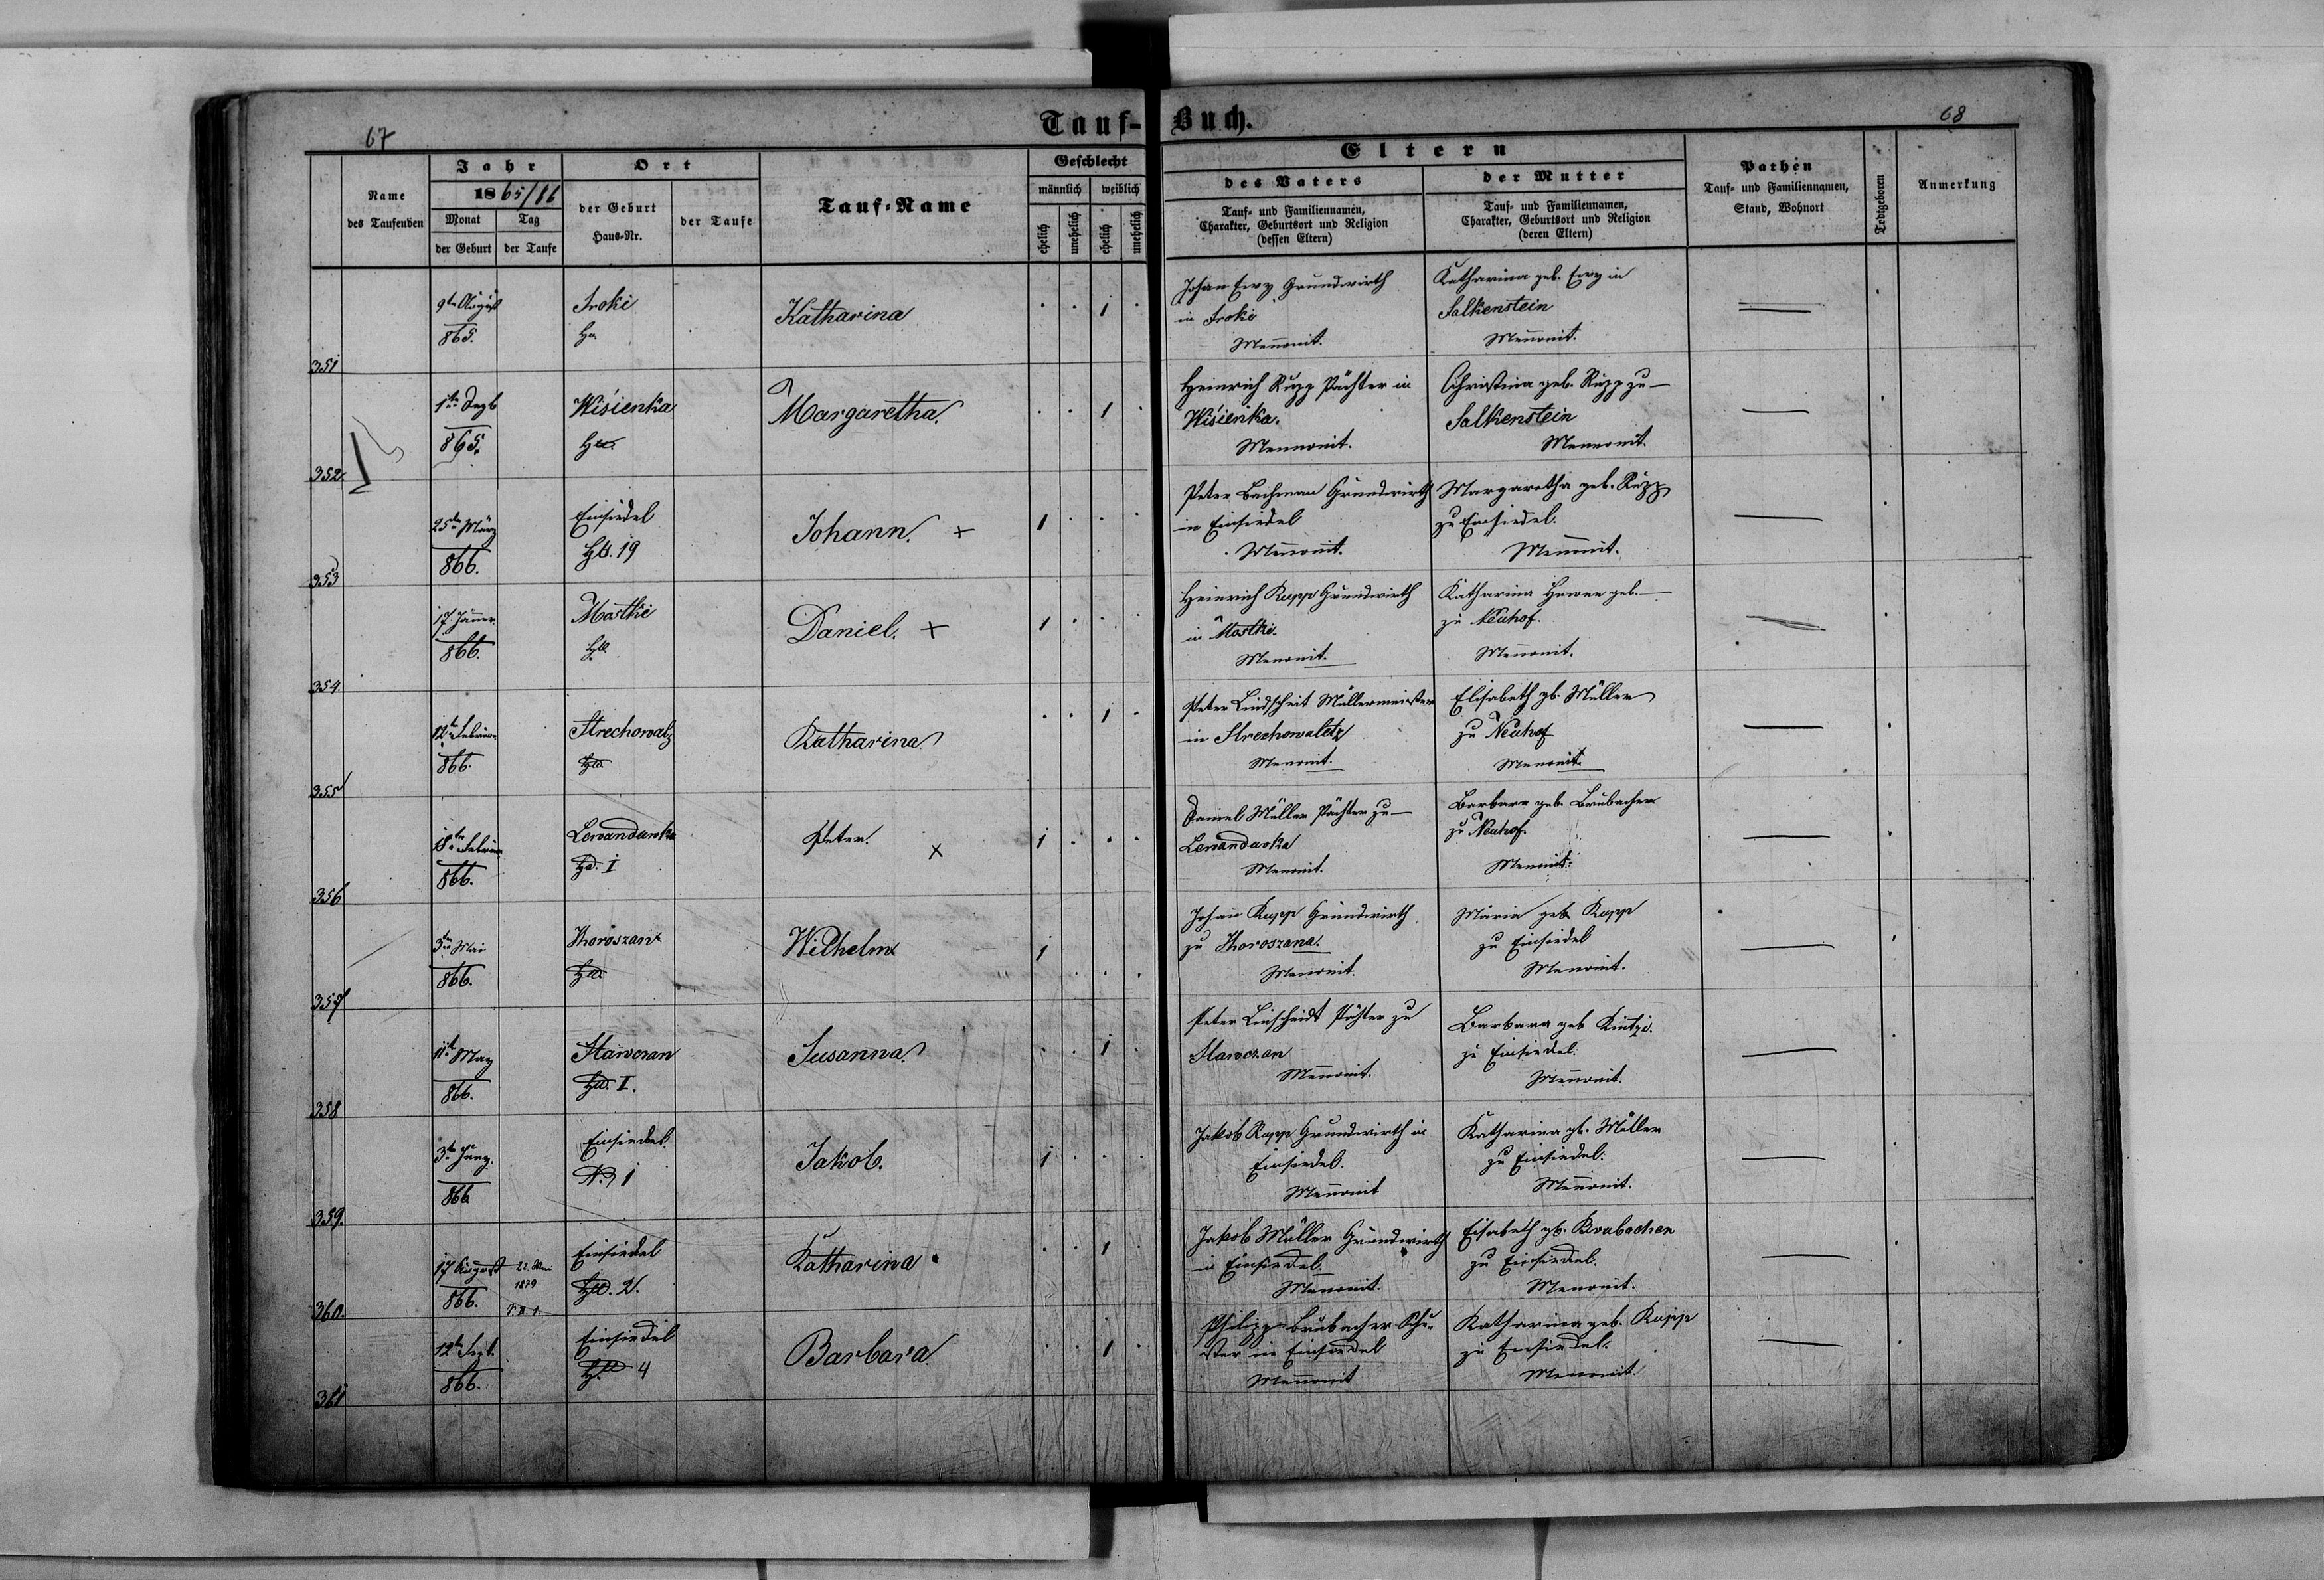 67
Tauf-
Buch.
68
Name
des Taufenden
Jahr
1865/66
Monat
der Geburt
Tag
der Taufe
Ort
der Geburt
Haus-Nr.
der Taufe
Tauf-Name
Geschlecht
männlich
weiblich
ehelich
unehelich
ehelich
unehelich
Eltern
des Vaters
Tauf- und Familiennamen,
Charakter, Geburtsort und Religion
(dessen Eltern)
der Mutter
Tauf- und Familiennamen,
Charakter, Geburtsort und Religion
(deren Eltern)
Pathen
Tauf- und Familiennamen,
Stand, Wohnort
Todtgeboren
Anmerkung
351
9te August
865.
Katharina
1
Johan Ewy Grundwirth
in
Mennonit.
Katharina geb. Ewy in
Falkenstein
Mennonit.
352.
1te Dezb
865.
Wisienka
Margaretha.
1
Heinrich Rupp Pächter in
Wisienka.
Mennonit.
Christina geb. Rupp zu
Falkenstein
Mennonit.
353
25te März
866.
Einsiedel
19
Johann. +
1
Peter Bachman Grundwirth
in Einsiedel
Mennonit.
Margaretha geb. Rupp
zu Einsiedel.
Mennonit.
354.
17 Jänner
866.
Mostki
Daniel. +
1
Heinrich Rupp Grundwirth
in Mostki.
Menonit.
Katharina geb.
zu Neuhof.
Mennonit.
355
12te Februar
866.
Strechowalz
Katharina
1
Peter Lindscheit Müllermeister
in
Menonit.
Elisabeth gb. Müller
zu Neuhof
Menonit.
356
18te Februar
866.
Lewandowka
I
Peter. x
1
Daniel Müller Pächter zu
Lewandowka
Menonit.
Barbara geb. Brubacher
zu Neuhof.
Menonit.
357
3te Mai
866.
Horoszana
Wilhelm
1
Johann Rupp Grundwirth
zu Horoszana.
Menonit.
Maria geb. Rupp
zu Einsiedel
Menonit.
358
11te May
866.
Stawczan
I.
Susanna.
1
Peter Linscheidt Pächter zu
Stawczan
Mennonit.
Barbara geb Kintzi.
zu Einsiedel.
Mennonit.
359.
3te
866
Einsiedel.
1
Jakob.
1
Jakob Rupp Grundwirth in
Einsiedel.
Mennonit
Katharina gb. Müller
zu Einsiedel.
Mennonit.
360.
17 August
866.
22.
1879
Einsiedel
2.
Katharina
1
Jakob Müller Grundwirth
in Einsiedel.
Mennonit.
Elsabeth gb. Brubacher
zu Einsiedel.
Menonit.
361
12te Sept.
866.
Einsiedel
4
Barbara
1
Philipp Brubacher Schu-
ster in Einsiedel
Mennonit
Katharina geb. Rupp
zu Einsiedel.
Menonit.